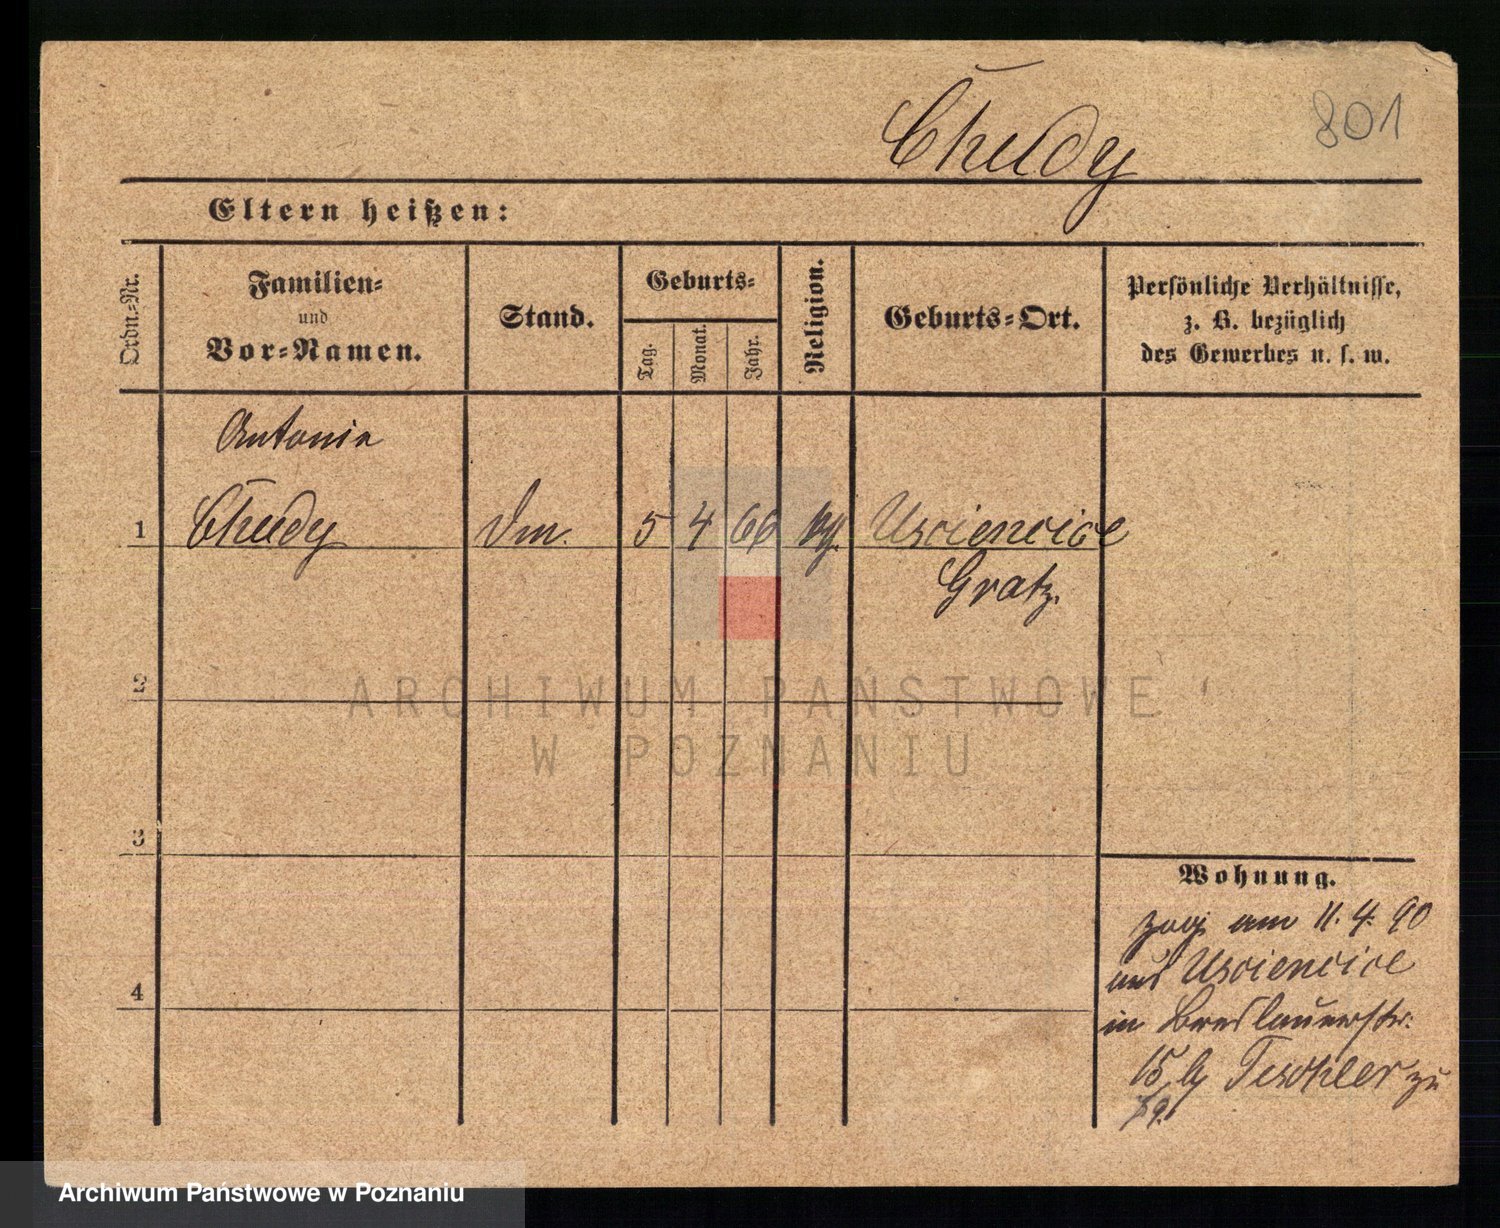 Chudy
801
Eltern heißen:
Ordn.-Nr.
Familien-
und
Vor-Namen.
Stand.
Geburts-
Tag.
Monat.
Jahr.
Religion.
Geburts-Ort.
Persönliche Verhältnisse,
z. B. bezüglich
des Gewerbes u. s. w.
Antonie
1 Chudy 5 4 66 Usciencice
Gratz.
2
ARCHIWUM PAŃSTWOWE
W POZNANIU
3
Wohnung.
zog am 11. 4. 90
aus Usciencice
in Breslauerstr.
15, Teschler zu
4
Archiwum Państwowe w Poznaniu